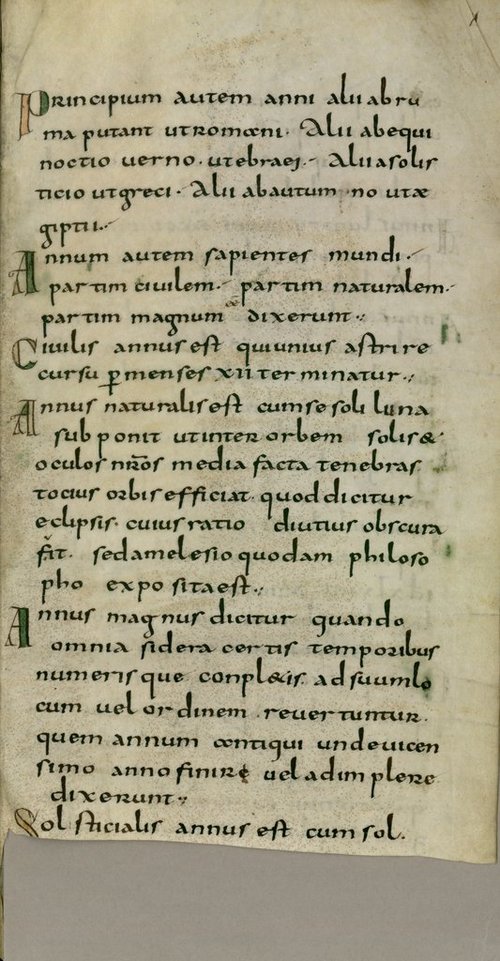 Principium autem anni alii abru
ma putant utromaeni. Alii abequi
noctio uerno. utebraei. Alii asolis
ticio utgreci. Alii abautum no utae
giptii.
Annum autem sapientes mundi.
partim ciuilem. partim naturalem.
partim magnum dixerunt.
Ciuilis annus est qui unius astri re
cursu ꝑ menses xii terminatur.
Annus naturalis est cum se soli luna
subponit ut inter orbem solis &
oculos nr̄os media facta tenebras
tocius orbis efficiat. quod dicitur
eclipsis. cuius ratio diutius obscura
fit. sed amelesio quodam philoso
pho exposita est.
Annus magnus dicitur quando
omnia sidera certis temporibus
numerisque conpl&is. ad suum lo
cum uel ordinem reuertuntur.
quem annum antiqui undeuicen
simo anno finire uel adimplere
dixerunt.
Solsticialis annus est cum sol.